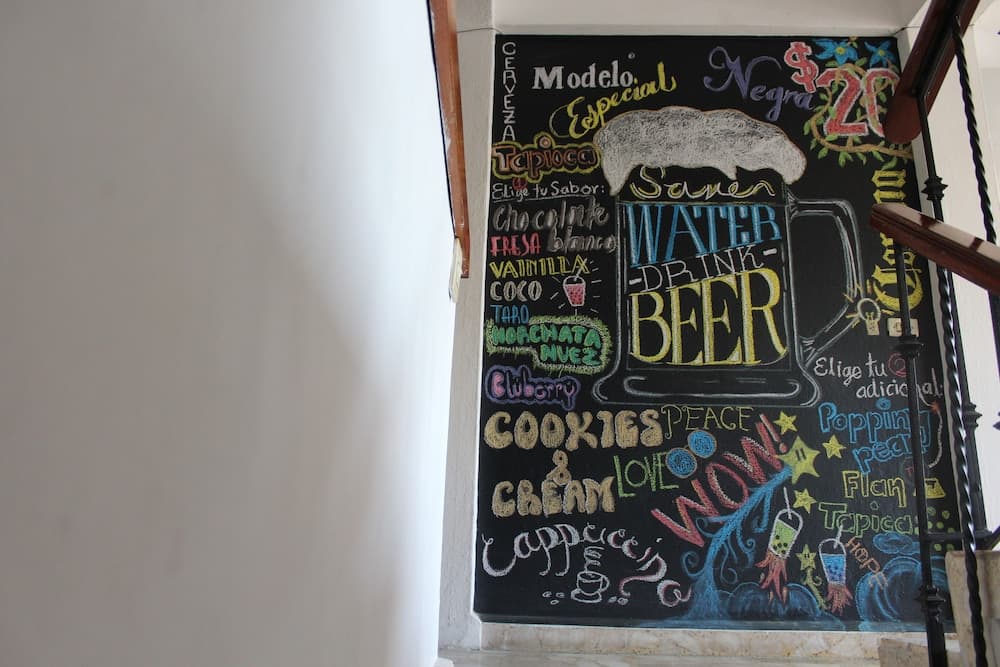 CERVEZA
Modelo
Especial
Negra
$20
Tapioca
Elige tu Sabor:
Chocolate
blanco
FRESA
VAINILLA
COCO
TARO
HORCHATA
NUEZ
Bluberry
COOKIES
&
CREAM
Cappuccino
Save
WATER
-DRINK-
BEER
PEACE
LOVE
WOW!
Elige tu
adicional:
Popping
pearl
Flan
Tapioca